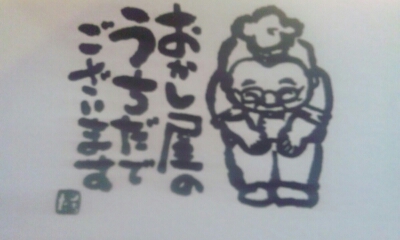 おかし屋の
うちだで
ございます